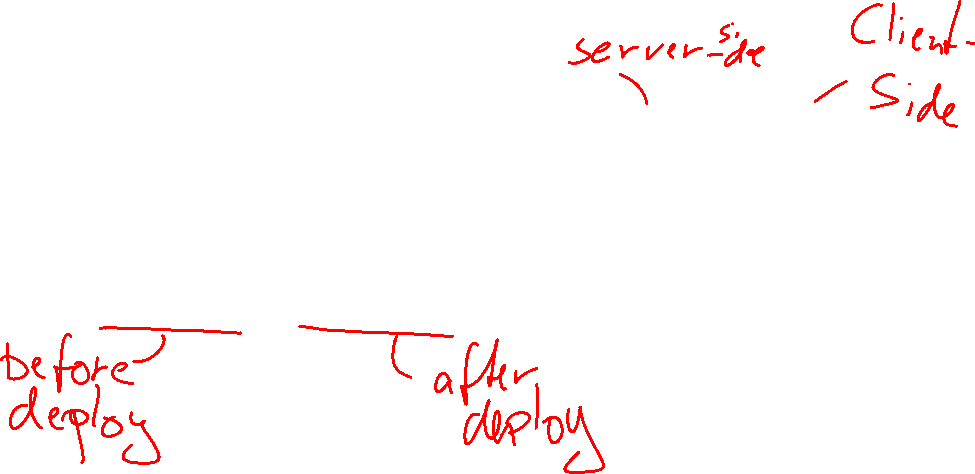 server-side
Client-
Side
before
deploy
after
deploy